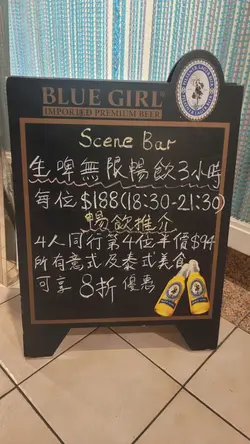 BLUE GIRL
IMPORTED PREMIUM BEER
Scene Bar
生啤無限暢飲3小時
每位$188(18:30-21:30)
暢飲推介
4人同行第4位半價$94
所有意式及泰式美食
可享8折優惠